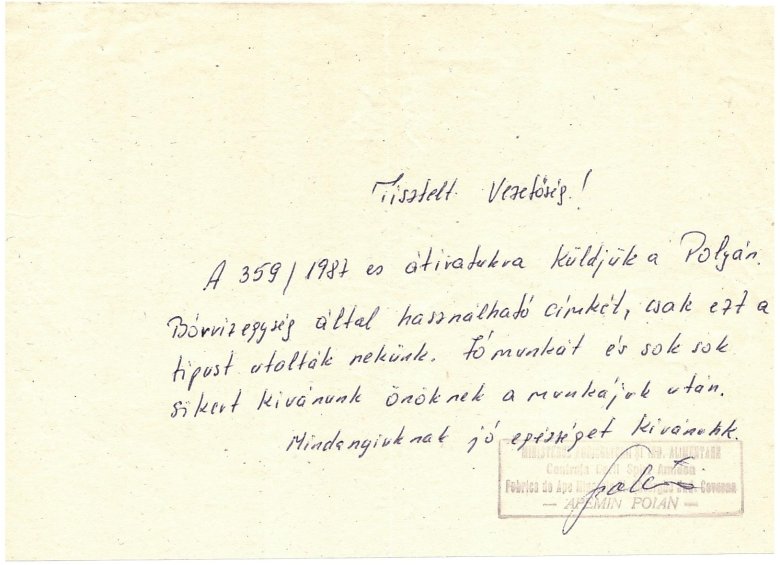 Tisztelt Vezetőség!
A 359/1987 es átiratukra küldjük a Polyán.
Bórvizegység által használható címkét, csak ezt a
tipust utolták nekünk. Jó munkát és sok sok
sikert kivánunk önöknek a munkájuk után.
Mindanyiuknak jó egészséget kivánunk.
ȘI IND. ALIMENTARE
Centrala
Fabrica de Ape Covasna
— APEMIN POIAN —